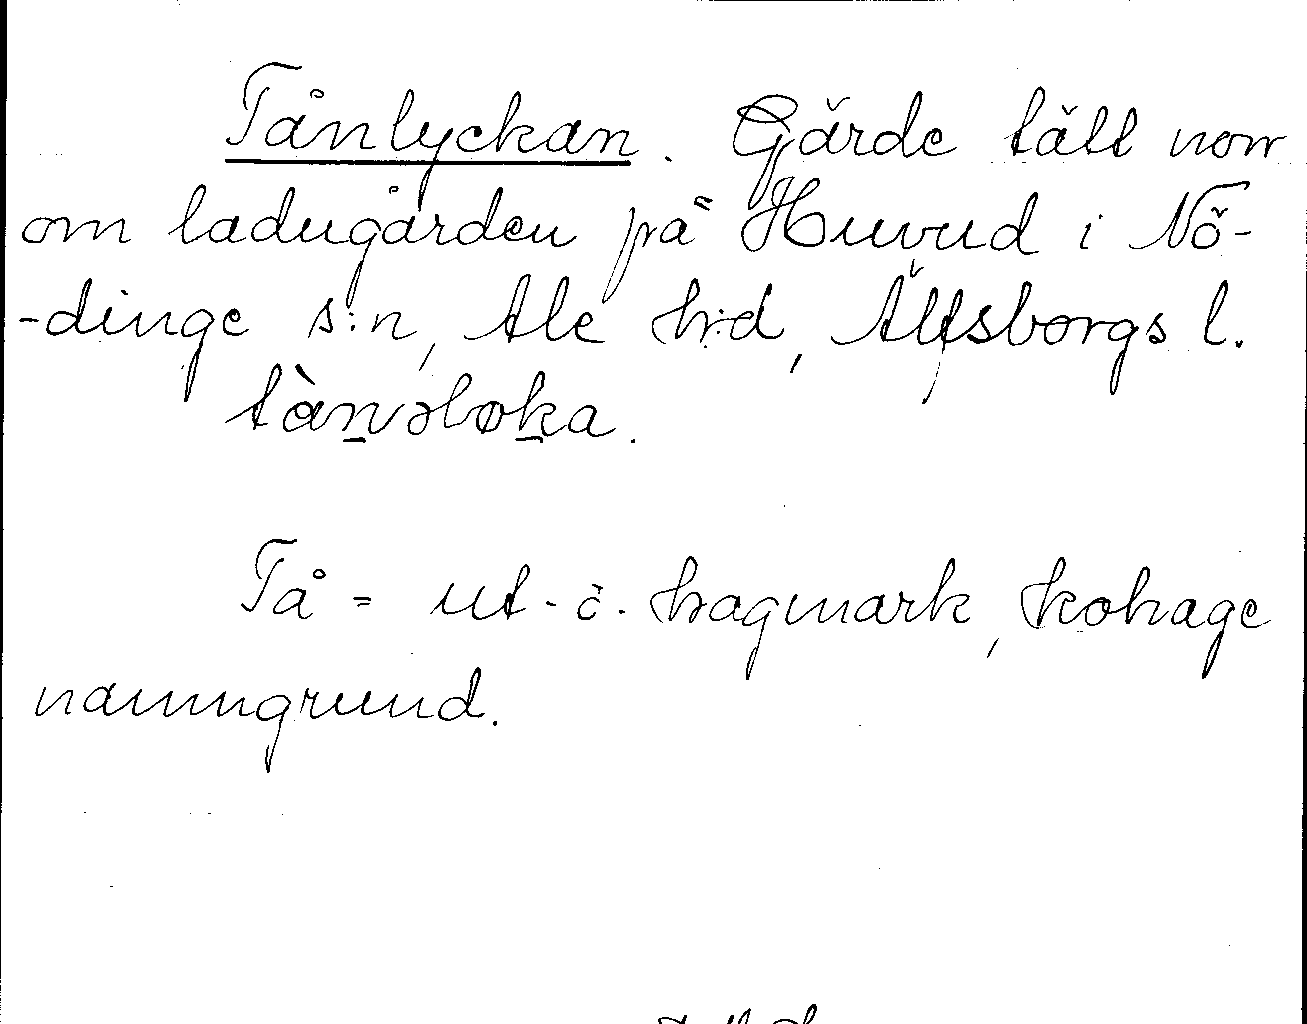 Tånlyckan. Gärde tätt norr
om ladugården på Huvud i Nö-
-dinge s:n, Ale h:d, Älfsborgs l.
tànəloka.
Tå = ut- o. hagmark, kohage
namngrund.